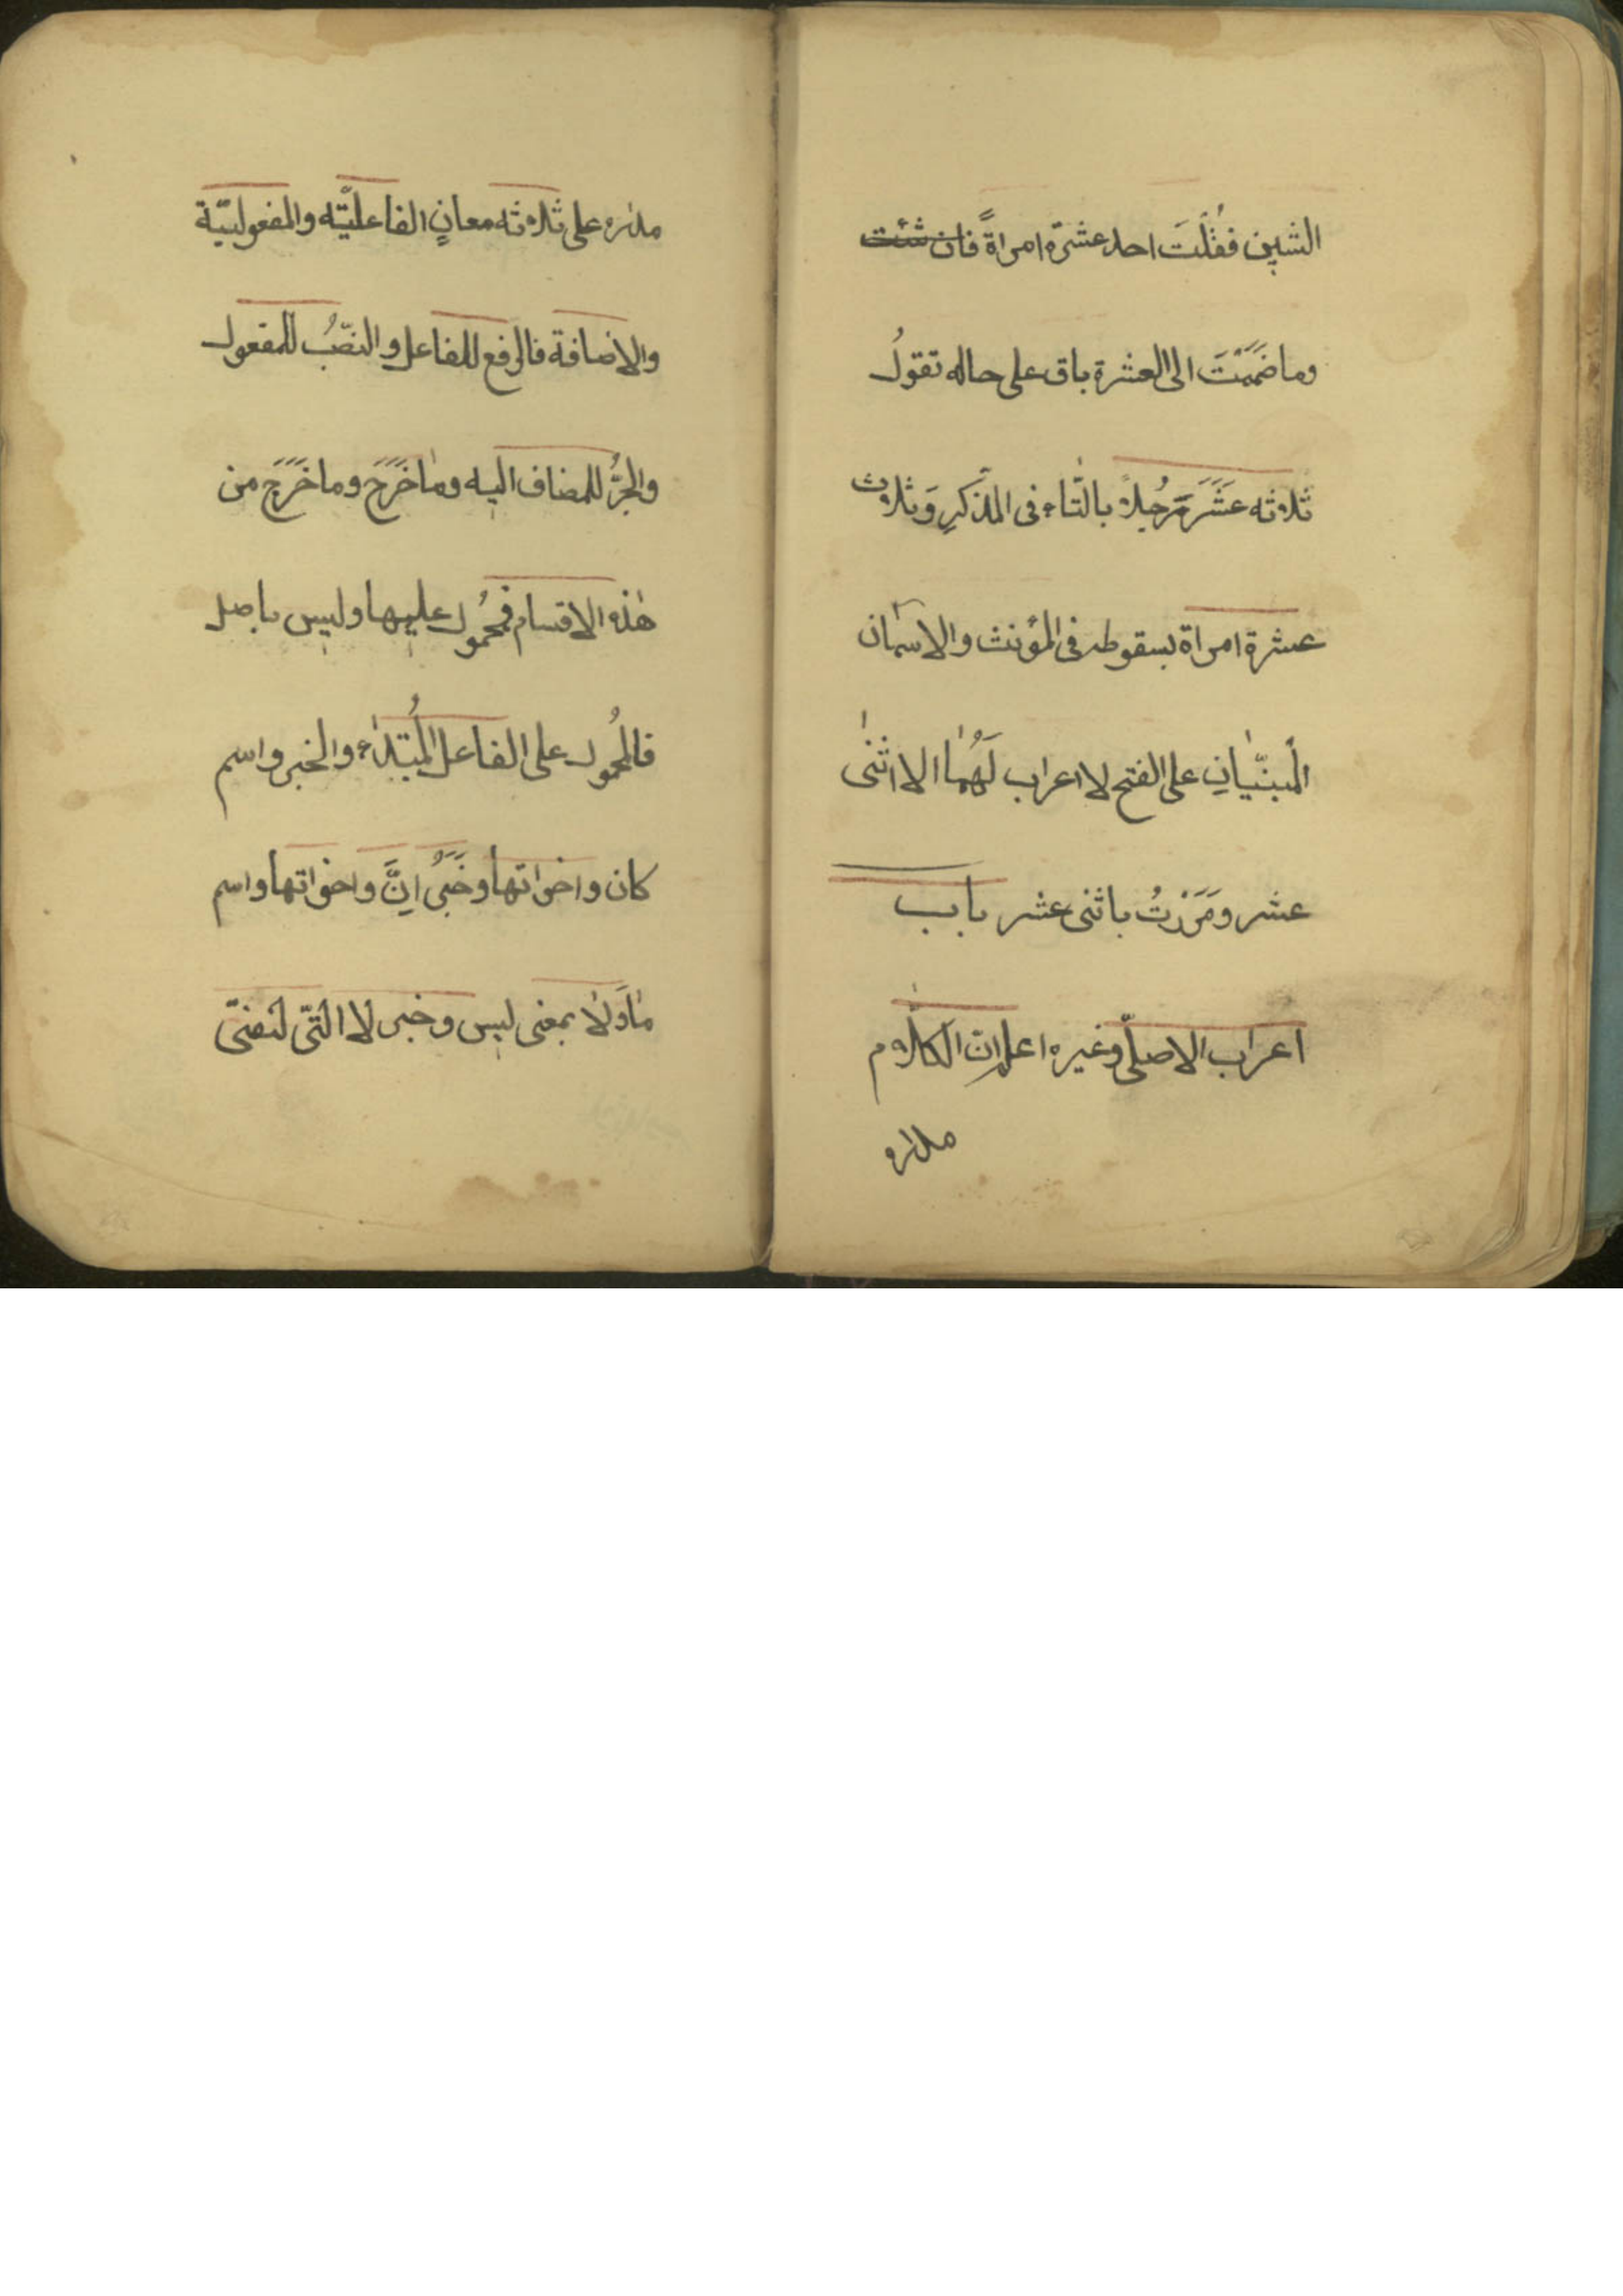 الشين فقُلتَ احد عشرة امراةً فان شئت
وما ضَمَمْتَ الى العشرة باق على حاله تقولُ
ثلاثه عَشَرَ رَجُلاً بالتاء فى المذَكرِ وَثلاث
عشرة امراة بسقوطه فى المؤنث والاسمان
المبنيّانِ على الفتح لا اعراب لَهُمَا الا اثنى
عشر ومَرَرْتُ باثنى عشر باب
اعراب الاصلّى وغيره اعلم ان الكلام
مداره
مداره على ثلاثه معانٍ الفاعليّه والمفعوليّة
والاضافة فالرفع للفاعل والنصّبُ للمفعول
والجرُّ للمضاف اليه وما خَرَجَ وما خَرَجَ من
هذه الاقسام فمحمُول عليها وليس باصل
فالمحمُول على الفاعل المُبتداء والخبر واسم
كان واخواتها وخَبَرُ اِنَّ واخواتها واسم
ما وَلا بمعنى ليس وخبر لا التّى لنفىّ